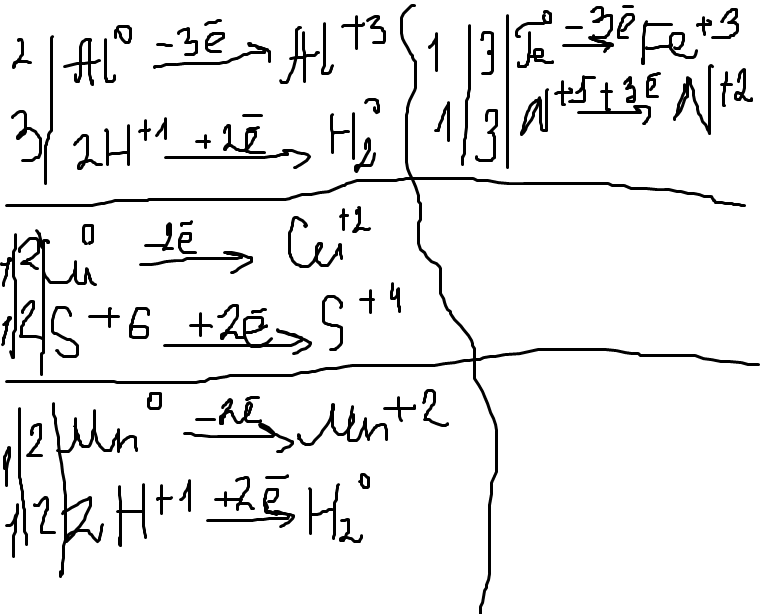 2 | Al⁰ -3ē → Al⁺³
3 | 2H⁺¹ +2ē → H₂⁰
1 | 3 | Fe⁰ -3ē → Fe⁺³
1 | 3 | N⁺⁵ +3ē → N⁺²
1 | 2 | Cu⁰ -2ē → Cu⁺²
1 | 2 | S⁺⁶ +2ē → S⁺⁴
1 | 2 | Mn⁰ -2ē → Mn⁺²
1 | 2 | 2H⁺¹ +2ē → H₂⁰